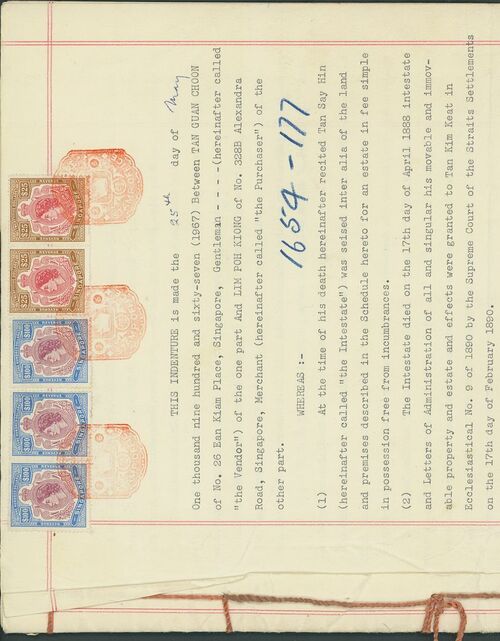 THIS INDENTURE is made the 25th day of May
One thousand nine hundred and sixty-seven (1967) Between TAN GUAN CHOON
of No. 26 Ean Kiam Place, Singapore, Gentleman - - - -(hereinafter called
"the Vendor") of the one part And LIM POH KIONG of No. 328B Alexandra
Road, Singapore, Merchant (hereinafter called "the Purchaser") of the
other part.
WHEREAS :-
1654 - 177
(1) At the time of his death hereinafter recited Tan Say Hin
(hereinafter called "the Intestate") was seized inter alia of the land
and premises described in the Schedule hereto for an estate in fee simple
in possession free from incumbrances.
(2) The Intestate died on the 17th day of April 1888 intestate
and Letters of Administration of all and singular his movable and immov-
able property and estate and effects were granted to Tan Kim Keat in
Ecclesiastical No. 9 of 1890 by the Supreme Court of the Straits Settlements
on the 17th day of February 1890.
$25
$25
$100
$100
$100